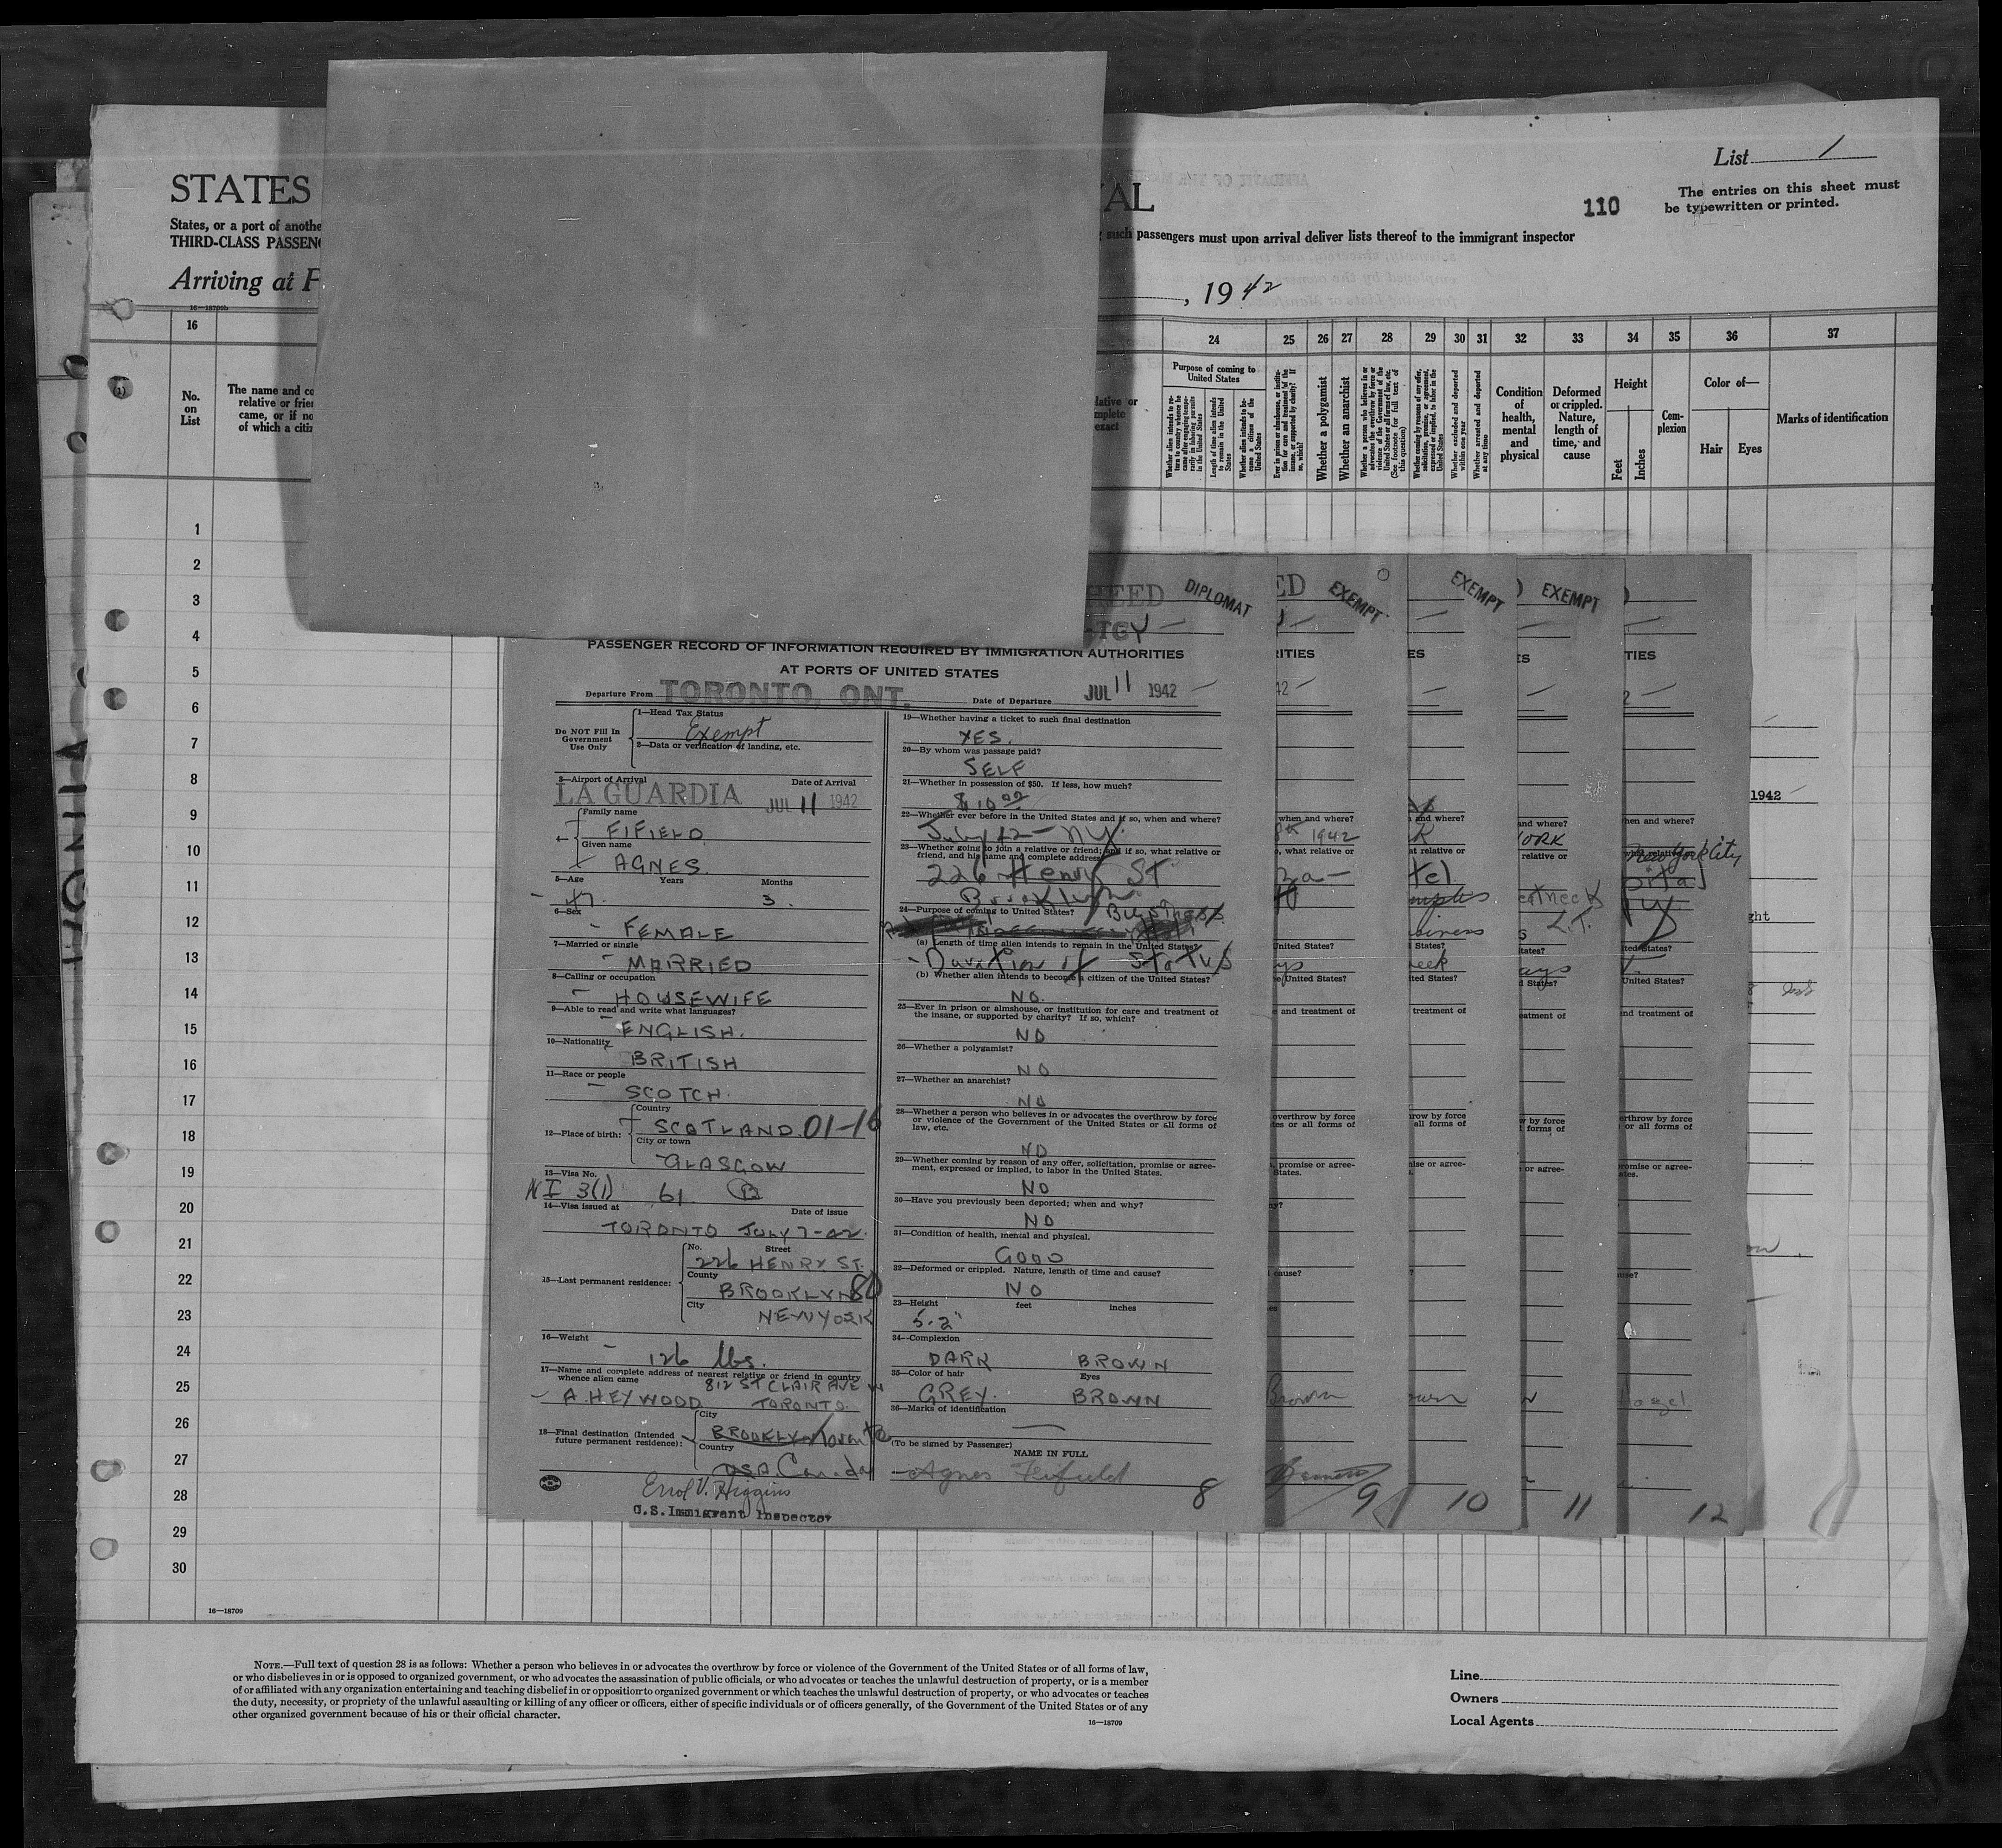 List 1
The entries on this sheet must
be typewritten or printed.
110
STATES
AL
States, or a port of anothe
THIRD-CLASS PASSEN
such passengers must upon arrival deliver lists thereof to the immigrant inspector
Arriving at
, 1942
16—18709b
16
24
25
26
27
28
29
30
31
32
33
34
35
36
37
No.
on
List
The name and co
relative or frien
came, or if no
of which a citiz
lative or
mplete
exact
Purpose of coming to
United States
Whether alien intends to re-
turn to country whence he
came after engaging tempo-
rarily in laboring pursuits
in the United States
Length of time alien intends
to remain in the United
States
Whether alien intends to be-
come a citizen of the
United States
Ever in prison or almshouse, or institu-
tion for care and treatment of the
insane, or supported by charity? If
so, which?
Whether a polygamist
Whether an anarchist
Whether a person who believes in or
advocates the overthrow by force or
violence of the Government of the
United States or all forms of law, etc.
(See footnote for full text of
this question)
Whether coming by reasons of any offer,
solicitation, promise, or agreement,
expressed or implied, to labor in the
United States
Whether excluded and deported
within one year
Whether arrested and deported
at any time
Condition
of
health,
mental
and
physical
Deformed
or crippled.
Nature,
length of
time, and
cause
Height
Feet
Inches
Com-
plexion
Color of—
Hair
Eyes
Marks of identification
1
2
3
4
5
6
7
8
9
10
11
12
13
14
15
16
17
18
19
20
21
22
23
24
25
26
27
28
29
30
16—18709
HEED DIPLOMAT
PASSENGER RECORD OF INFORMATION REQUIRED BY IMMIGRATION AUTHORITIES
AT PORTS OF UNITED STATES
Departure From TORONTO, ONT. Date of Departure JUL 11 1942
Do NOT Fill In
Government
Use Only
1—Head Tax Status
Exempt
2—Data or verification of landing, etc.
3—Airport of Arrival Date of Arrival
LA GUARDIA JUL 11 1942
4— Family name
FIFIELD
Given name
AGNES.
5—Age Years Months
47. 3.
6—Sex
FEMALE
7—Married or single
MARRIED
8—Calling or occupation
HOUSEWIFE
9—Able to read and write what languages?
ENGLISH.
10—Nationality
BRITISH
11—Race or people
SCOTCH.
12—Place of birth: Country
SCOTLAND. 01-16
City or town
GLASGOW
13—Visa No.
NI 3(1) 61 B
14—Visa issued at Date of issue
TORONTO JULY 7-42.
15—Last permanent residence: No. Street
226 HENRY ST.
County
BROOKLYN 80
City
NEW YORK
16—Weight
126 lbs.
17—Name and complete address of nearest relative or friend in country
whence alien came 812 ST CLAIR AVE W
A. HEYWOOD TORONTO.
18—Final destination (Intended
future permanent residence): City
BROOKLYN Toronto
Country
USA. Canada
Errol V. Higgins
U.S. Immigrant Inspector
19—Whether having a ticket to such final destination
YES.
20—By whom was passage paid?
SELF
21—Whether in possession of $50. If less, how much?
$10.00
22—Whether ever before in the United States and if so, when and where?
July 42 - NY.
23—Whether going to join a relative or friend; and if so, what relative or
friend, and his name and complete address
226 Henry St
Brooklyn
24—Purpose of coming to United States? Business
(a) Length of time alien intends to remain in the United States?
Duration of Status
(b) Whether alien intends to become a citizen of the United States?
NO.
25—Ever in prison or almshouse, or institution for care and treatment of
the insane, or supported by charity? If so, which?
NO
26—Whether a polygamist?
NO
27—Whether an anarchist?
NO
28—Whether a person who believes in or advocates the overthrow by force
or violence of the Government of the United States or all forms of
law, etc.
NO
29—Whether coming by reason of any offer, solicitation, promise or agree-
ment, expressed or implied, to labor in the United States.
NO
30—Have you previously been deported; when and why?
NO
31—Condition of health, mental and physical.
GOOD
32—Deformed or crippled. Nature, length of time and cause?
NO
33—Height feet inches
5-2"
34—Complexion
DARK BROWN
35—Color of hair Eyes
GREY. BROWN
36—Marks of identification
(To be signed by Passenger)
NAME IN FULL
Agnes Fifield
8
ED EXEMPT
RITIES
when and where?
1942
, what relative or
United States?
e United States?
e and treatment of
overthrow by force
tes or all forms of
, promise or agree-
States.
cause?
Brown
9
EXEMPT
ES
and where?
at relative or
tel
siness
States?
week
ited States?
treatment of
row by force
all forms of
ise or agree-
10
EXEMPT
ES
and where?
YORK
relative or
L.I.
tates?
ays
d States?
eatment of
w by force
forms of
or agree-
11
TIES
hen and where?
New York City
ted States?
United States?
nd treatment of
erthrow by force
or all forms of
romise or agree-
ates.
use?
Hazel
12
1942
ght
NOTE.—Full text of question 28 is as follows: Whether a person who believes in or advocates the overthrow by force or violence of the Government of the United States or of all forms of law,
or who disbelieves in or is opposed to organized government, or who advocates the assassination of public officials, or who advocates or teaches the unlawful destruction of property, or is a member
of or affiliated with any organization entertaining and teaching disbelief in or opposition to organized government or which teaches the unlawful destruction of property, or who advocates or teaches
the duty, necessity, or propriety of the unlawful assaulting or killing of any officer or officers, either of specific individuals or of officers generally, of the Government of the United States or of any
other organized government because of his or their official character.
16—18709
Line
Owners
Local Agents